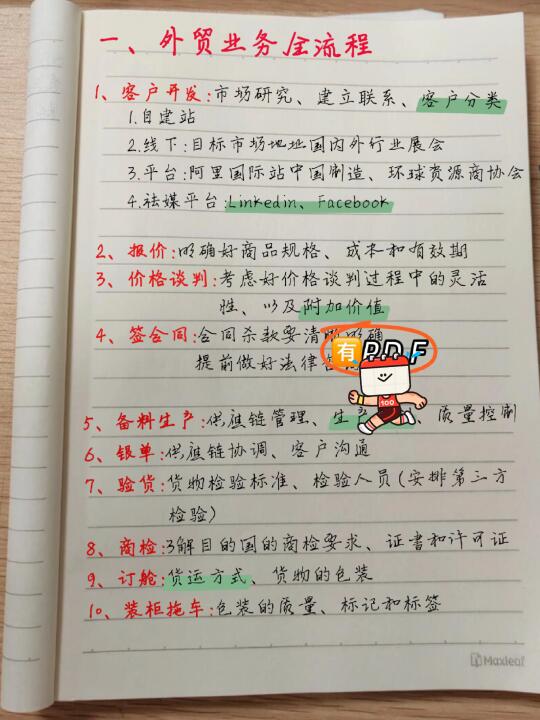 一、外贸业务全流程
1、客户开发:市场研究、建立联系、客户分类
1.自建站
2.线下:目标市场地址国内外行业展会
3.平台:阿里国际站中国制造、环球资源商协会
4.社媒平台:Linkedin、Facebook
2、报价:明确好商品规格、成本和有效期
3、价格谈判:考虑好价格谈判过程中的灵活
性、以及附加价值
4、签合同:合同条款要清晰明确
有PDF
提前做好法律
100
5、备料生产:供应链管理、生产、质量控制
6、跟单:供应链协调、客户沟通
7、验货:货物检验标准、检验人员(安排第三方
检验)
8、商检:了解目的国的商检要求、证书和许可证
9、订舱:货运方式、货物的包装
10、装柜拖车:包装的质量、标记和标签
Maxleaf